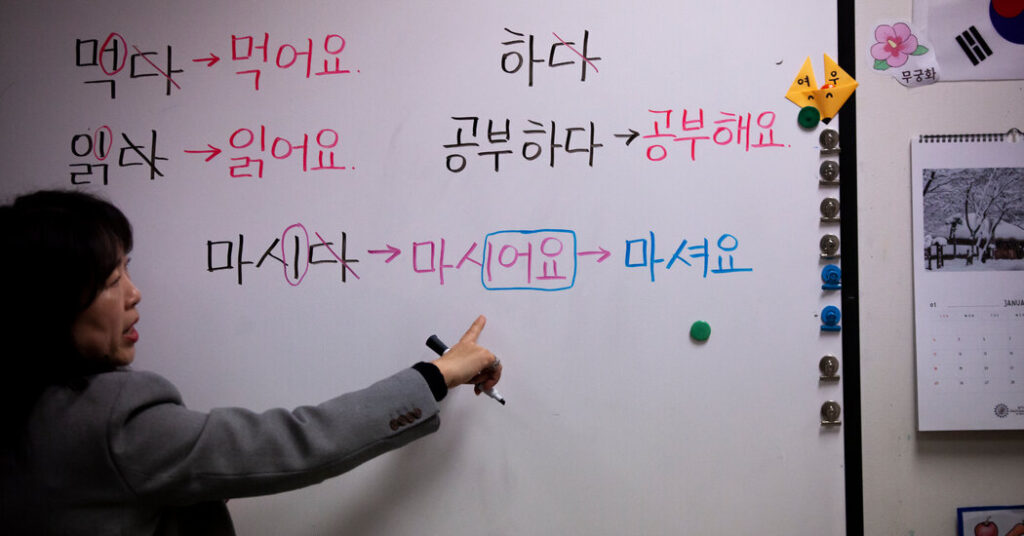 먹다 → 먹어요.
하다
읽다 → 읽어요.
공부하다 → 공부해요.
마시다 → 마시어요 → 마셔요
여우
무궁화
01 JANUA